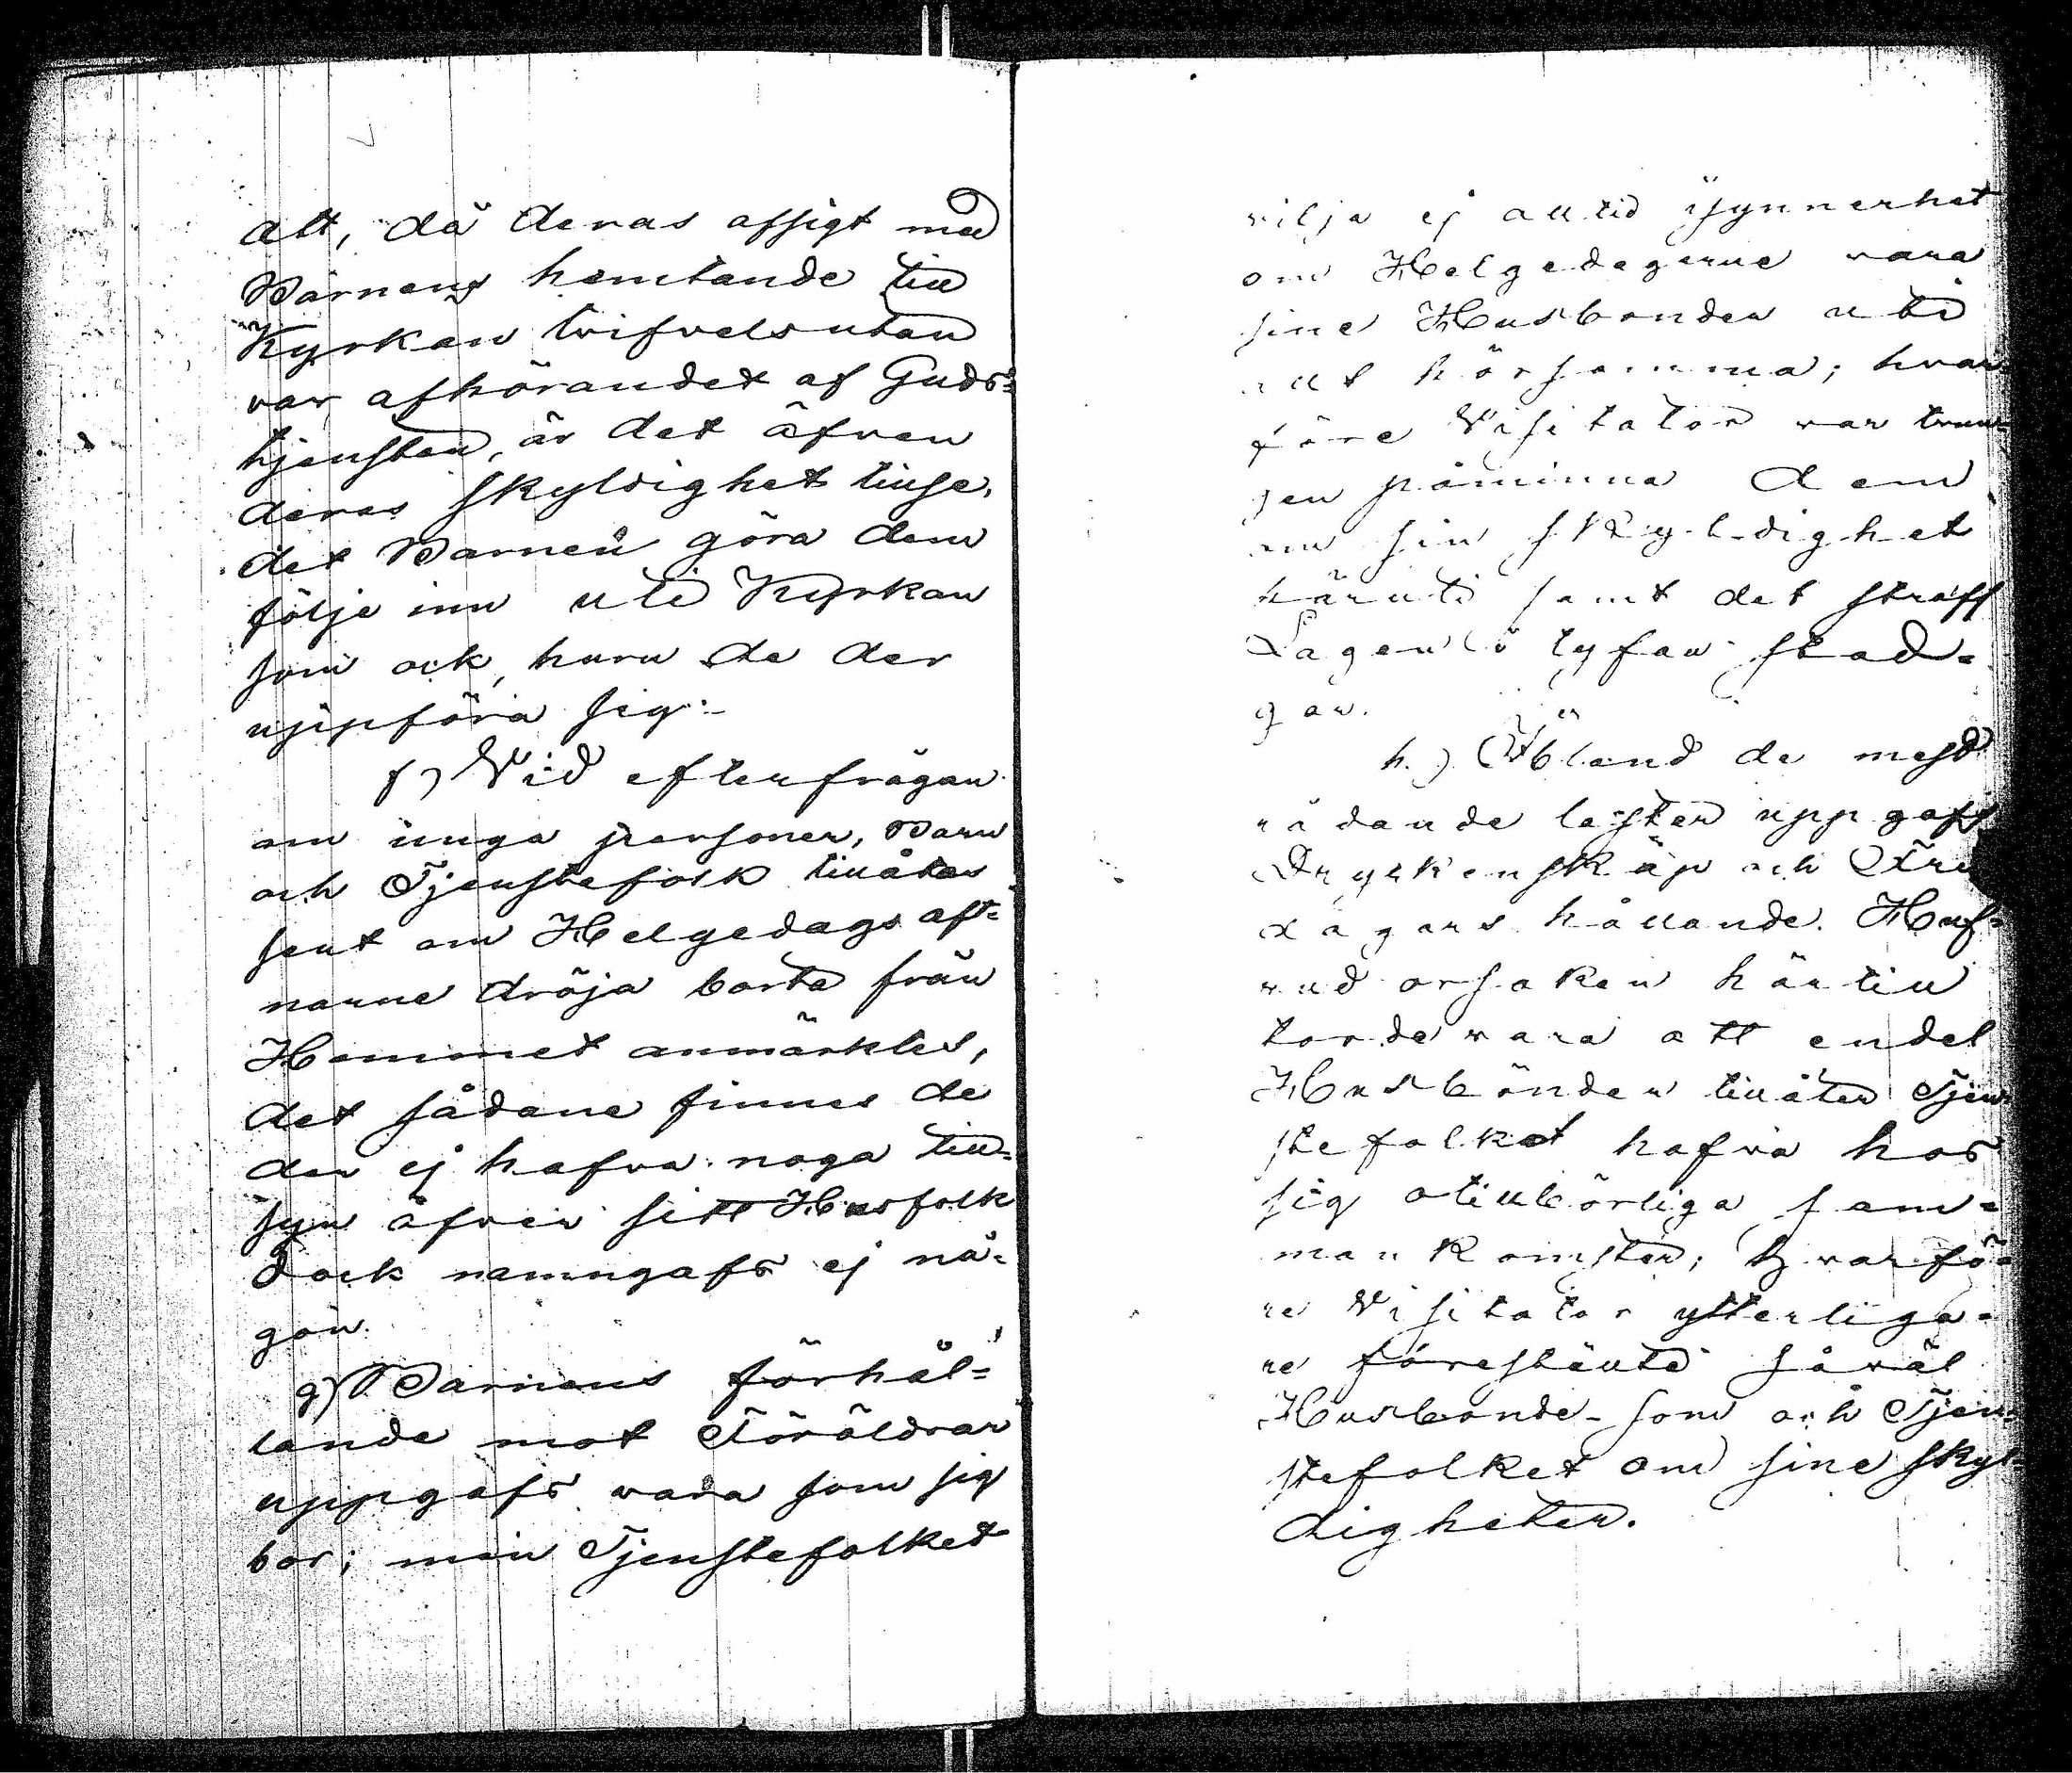 att, då deras afsigt med
Barnens hemtande till
Kyrkan tvifvelsutan
var afhörandet af Guds-
tjensten, är det äfven
deras skyldighet tillse,
det Barnen göra dem
följe inn uti Kyrkan
som ock, huru de der
uppföra sig:-
f) Vid efterfrågan
om unga personer, Barn
och Tjenstefolk tillåtas
sent om Helgedags aft-
narne dröja borta från
Hemmet anmärktes,
det sådane finnes de
der ej hafva noga till-
syn äfven sitt Husfolk
dock namngafs ej nå-
gon.
g) Barnens förhål-
lande mot Föräldrar
uppgafs vara som sig
bör; men Tjenstefolket
vilja ej alltid isynnerhet
om Helgedagarne vara
sine Husbonder uti
allt hörsamma; hvar-
före Visitator var tvun-
gen påminna dem
om sin skyldighet
häruti samt det straff
Lagen å tyfan stad-
gar.
h.) Ibland de mest
rådande laster uppgafs
Dryckenskap och
hållande. Huf-
vud orsaken härtill
torde vara att endel
Husbönder tillåter Tjen-
stefolket hafva hos
sig otillbörliga sam-
mankomster; hvarfö-
re Visitator ytterliga-
re förestälte såväl
Husbonde- som och Tjen-
stefolket om sine skyl-
digheter.